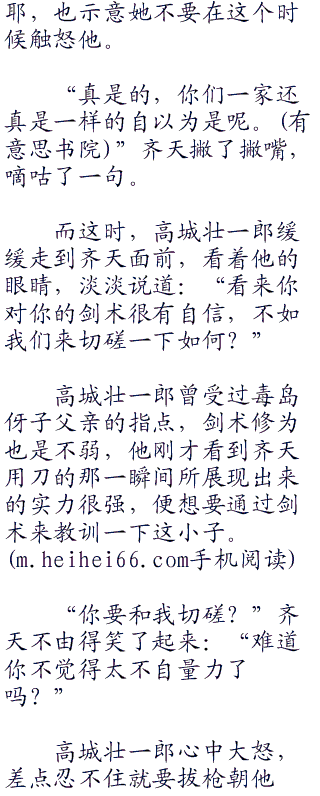 耶，也示意她不要在这个时
候触怒他。
“真是的，你们一家还
真是一样的自以为是呢。(有
意思书院)”齐天撇了撇嘴，
嘀咕了一句。
而这时，高城壮一郎缓
缓走到齐天面前，看着他的
眼睛，淡淡说道：“看来你
对你的剑术很有自信，不如
我们来切磋一下如何？”
高城壮一郎曾受过毒岛
伢子父亲的指点，剑术修为
也是不弱，他刚才看到齐天
用刀的那一瞬间所展现出来
的实力很强，便想要通过剑
术来教训一下这小子。
(m.heihei66.com手机阅读)
“你要和我切磋？”齐
天不由得笑了起来：“难道
你不觉得太不自量力了
吗？”
高城壮一郎心中大怒，
差点忍不住就要拔枪朝他